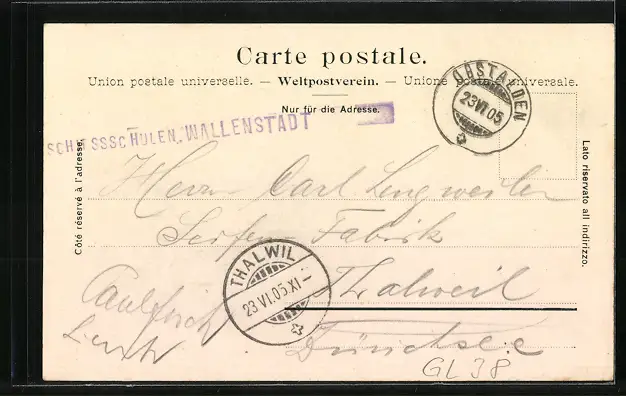 Carte postale.
Union postale universelle. — Weltpostverein. — Unione postale universale.
Nur für die Adresse.
OBSTALDEN
23 VI 05
SCHIESSSCHULEN, WALLENSTADT
Côté réservé à l'adresse.
Lato riservato all indirizzo.
Herrn Carl Lengweiler
Seifen Fabrik
THALWIL
23 VI. 05. XI –
Thalweil
Zürichsee
GL 38